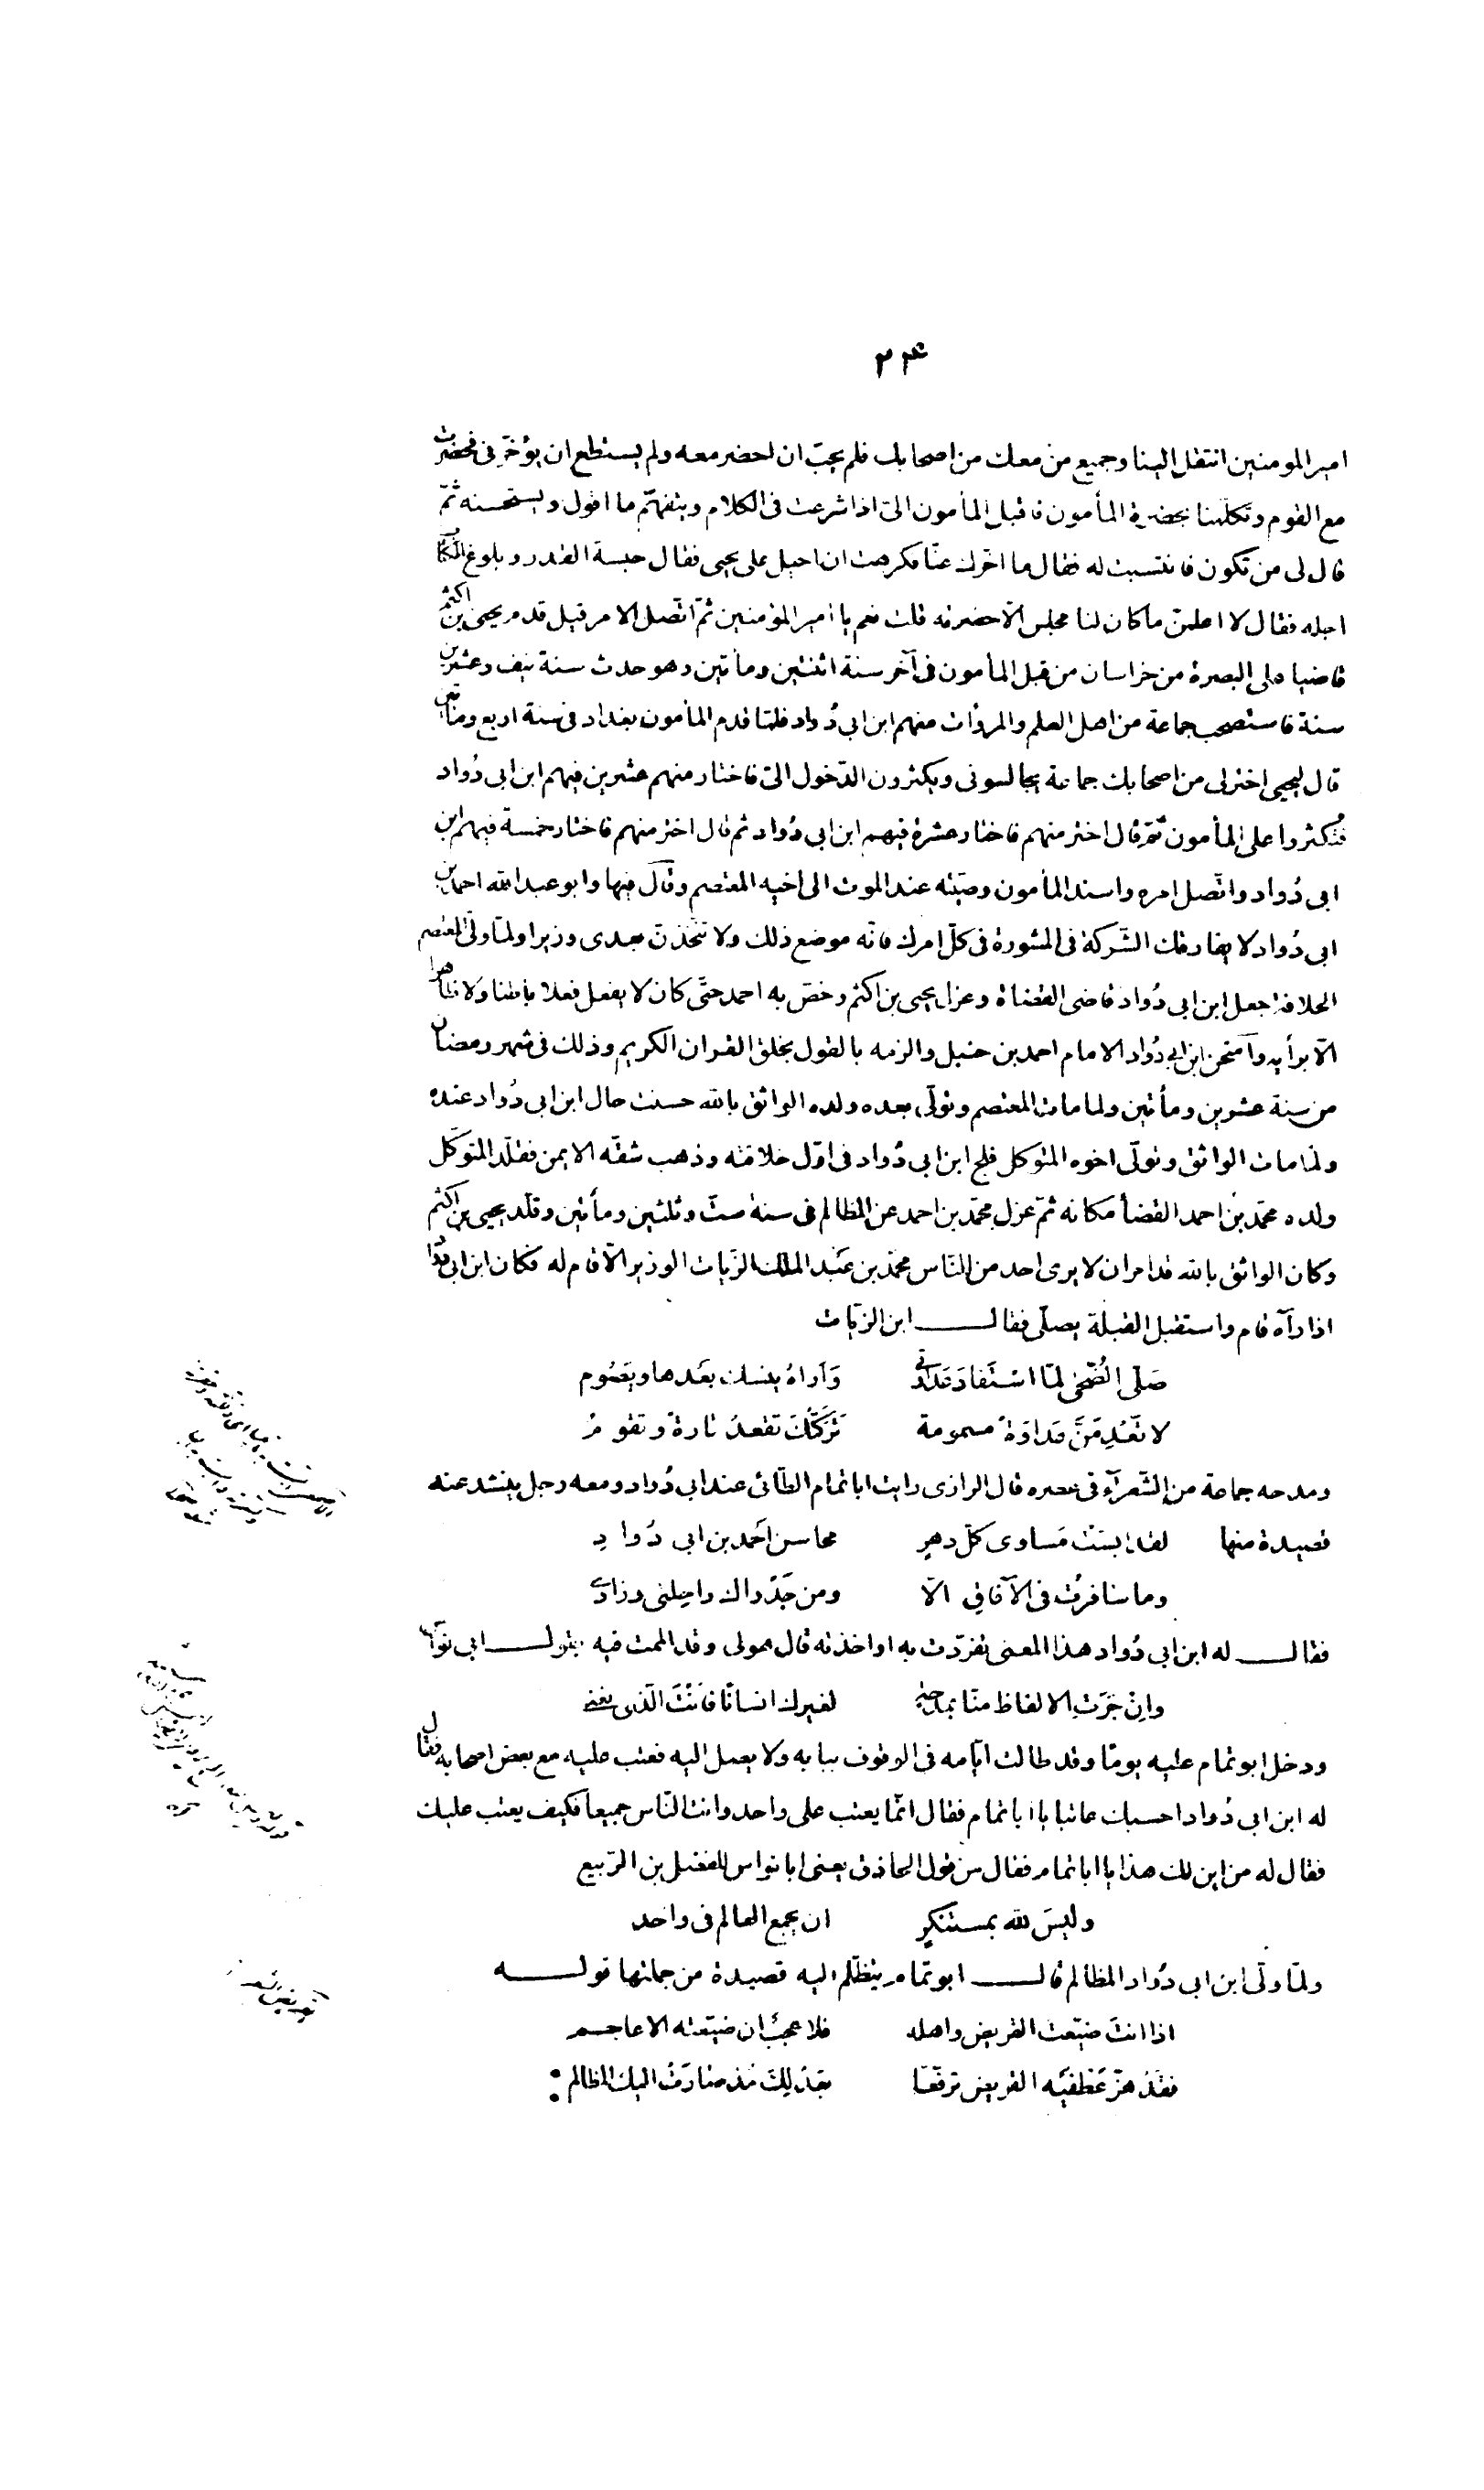 ٢٣
امير المومنين انتقل الينا وجميع من معك من اصحابك فلم يحب ان احضر معه ولم يستطع ان يؤخرنى فحضرت
مع القوم وتكلمنا بحضرة المأمون فاقبل المأمون الىّ اذا شرعت فى الكلام ويتفهّم ما اقول ويستحسنه ثمّ
قال لى من تكون فانتسبت له فقال ما اخّرك عنّا فكرهت ان احيل على يحيى فقال حبسة القدر وبلوغ الكتاب
اجله فقال لا اعلمنّ ما كان لنا مجلس الّا حضرته قلت نعم يا امير المؤمنين ثمّ اتّصل الامر قيل قدم يحيى بن اكثم
قاضيا على البصرة من خراسان من قبل المأمون فى آخر سنة اثنتين ومأتين وهو حدث سنة نيف وعشرين
سنة فاستصحب جماعة من اهل العلم والمروّات منهم ابن ابى دُواد فلمّا قدم المأمون بغداد فى سنة اربع ومأتين
قال ليحيى اختر لى من اصحابك جماعة يجالسونى ويكثرون الدّخول الىّ فاختار منهم عشرين فيهم ابن ابى دُواد
فكثروا على المأمون ثمّ قال اختر منهم فاختار عشرة فيهم ابن ابى دُواد ثم قال اختر منهم فاختار خمسة فيهم ابن
ابى دُواد واتّصل امره واسند المأمون وصيّته عند الموت الى اخيه المعتصم وقال فيها وابو عبد الله احمد بن
ابى دُواد لا يفارقك الشّركة فى المشورة فى كلّ امرك فانّه موضع ذلك ولا تتّخذنّ بعدى وزيرا ولمّا ولّى المعتصم
الخلافة جعل ابن ابى دُواد قاضى القضاة وعزل يحيى بن اكثم وخصّ به احمد حتّى كان لا يفعل فعلا باطنا ولا ظاهرا
الّا برأيه وامتحن ابن ابى دُواد الامام احمد بن حنبل والزمه بالقول بخلق القران الكريم وذلك فى شهر رمضان
من سنة عشرين ومأتين ولما مات المعتصم وتولّى بعده ولده الواثق بالله حسنت حال ابن ابى دُواد عنده
ولمّا مات الواثق وتولّى اخوه المتوكل فلج ابن ابى دُواد فى اوّل خلافته وذهب شقّه الايمن فقلّد المتوكّل
ولده محمّد بن احمد القضأ مكانه ثمّ عزل محمّد بن احمد عن المظالم فى سنة ستّ وثلثين ومأتين وقلّد يحيى بن اكثم
وكان الواثق بالله قد امر ان لا يرى احد من النّاس محمّد بن عبد الملك الزّيات الوزير الّا قام له فكان ابن ابى دُواد
اذا رآه قام واستقبل القبلة يصلّى فقال ابن الزيّات
صَلّى الضُّحى لمّا اسْتَفادَ عَداوتى وَاَراهُ ينسك بعَدها ويَصُوم
لا تَعْدِمَنَّ عَداوَةً مسمومة تَرَكَتْكَ تقعدُ تارةً وتقومُ
ومدحه جماعة من الشّعرآء فى عصره قال الرازى رايت اباتمام الطّآئى عند ابى دُواد ومعه رجل ينشد عنه
قصيدة منها لقد انستْ مَساوى كلّ دهرٍ محاسن احَمد بن ابى دُوادِ
وما سافرتُ فى الآفاقِ الّا ومن جَدْواك راحلتى وزادى
فقال له ابن ابى دُواد هذا المعنى تفرّدت به او اخذته قال هو لى وقد الممت فيه بقول ابى نواس
وان جَرَتِ الالفاظ منّا بمدحةٍ لغيرك انسانًا فَاَنْتَ الّذى نعنى
ودخل ابو تمام عليه يومًا وقد طالت ايّامه فى الوقوف ببابه ولا يصل اليه فعتب عليه مع بعض اصحابه فقال
له ابن ابى دُواد احسبك عاتبا يا ابا تمام فقال انّما يعتب على واحد وانت النّاس جميعا فكيف يعتب عليك
فقال له من اين لك هذا يا ابا تمام فقال من قول الحاذق يعنى ابا نواس للفضل بن الرّبيع
وليسَ لله بمستنكرٍ ان يجمع العالم فى واحد
ولمّا ولّى ابن ابى دُواد المظالم قال ابو تمّام يتظلّم اليه قصيدة من جملتها قوله
اذا انتَ ضيّعت القريض واهله فلا عجبٌ ان ضيّعته الاعاجم
فقدْ هزّ عَطْفَيْه القريض ترفّعًا بعَدْلِكَ مُذ صارَتْ اليك المظالم